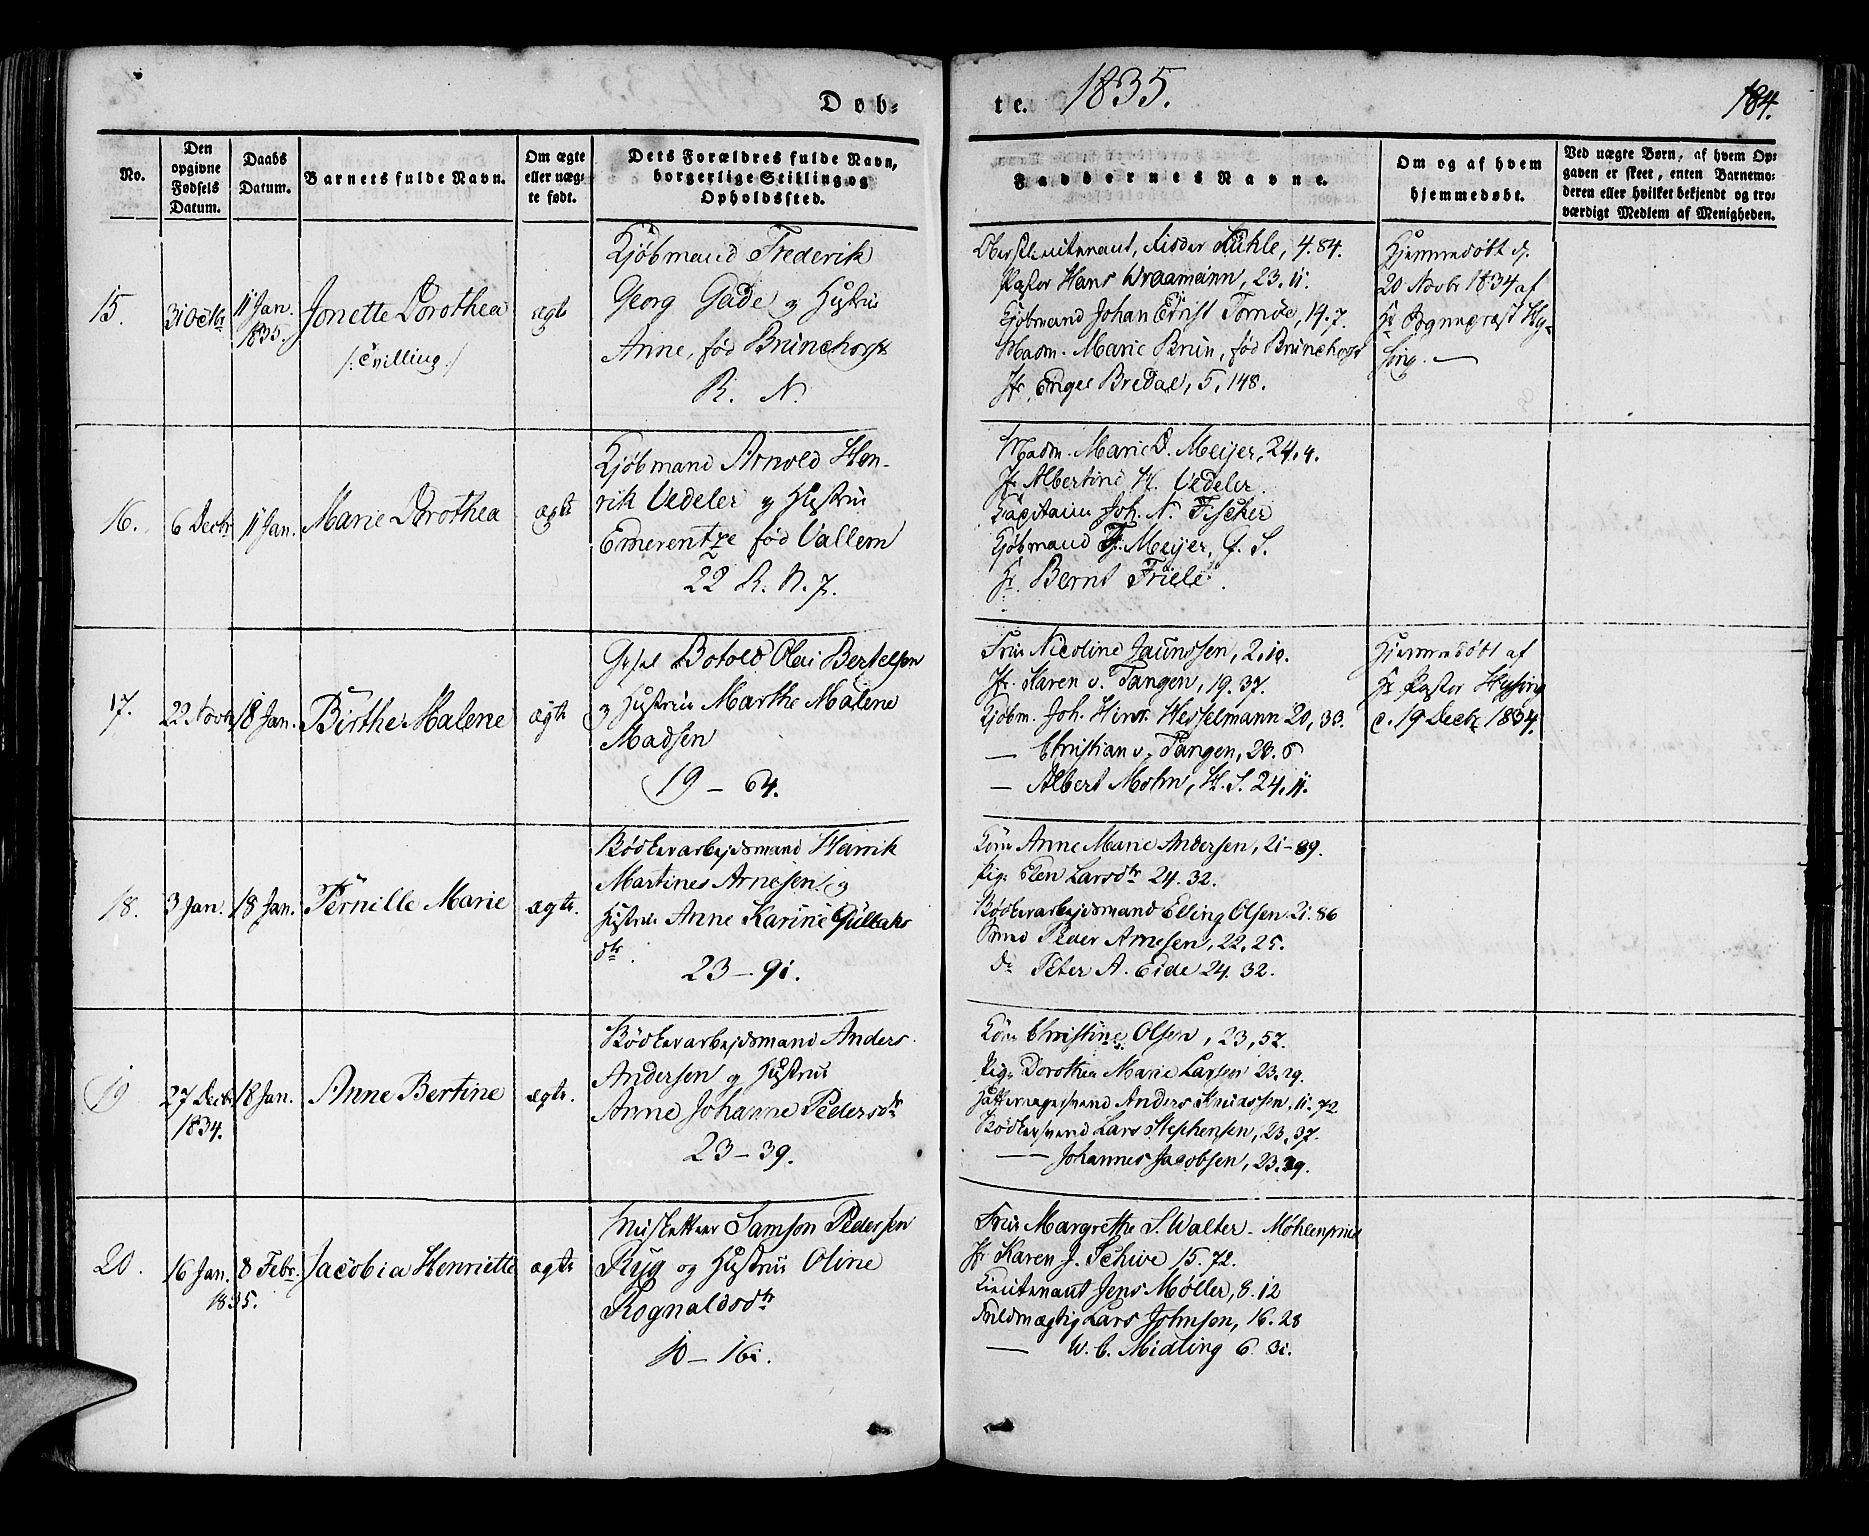 Døb-
te. 1835.
184.
No.
Den opgivne Fødsels Datum.
Daabs Datum.
Barnets fulde Navn.
Om ægte eller uæg-te født.
Dets Forældres fulde Navn, borgerlige Stilling og Opholdssted.
Faddernes Navne.
Om og af hvem hjemmedøbt.
Ved uægte Børn, af hvem Op-gaven er skeet, enten Barnemo-deren eller hvilket bekjendt og tro-værdigt Medlem af Menigheden.
15.
31 Octbr
11 Jan.
1835.
Jonette Dorothea
/: Tvilling :/
ægte
Kjøbmand Frederik
Georg Gade og Hustrue
Anne, fød Brunchorst
R. N.
Oberstlieutenant, Ridder Kuhle, 4.84.
Pastor Hans Wraamann, 23.11.
Kjøbmand Johan Ernst Tornøe, 14.7.
Madm. Marie Brun, fød Brunchorst
Jfr. Inger Bredal, 5.148.
Hjemmedøbt d.
20 Novbr 1834 af
Hr Sognepræst Hy-
sing.
16.
6 Decbr
11 Jan.
Marie Dorothea
ægte
Kjøbmand Arnold Hen-
rik Vedeler og Hustrue
Emerentze fød Vallem
22 R. N. 7.
Madm. Marie D. Meijer, 24.4.
Jfr Albertine H. Vedeler
Capitain Joh. N. Fischer
Kjøbmand F. Meijer, G. S.
Hr. Bernt Friele.
17.
22 Novbr
18 Jan.
Birthe Malene
ægte
Gesel Botold Olai Bertelsen
og Hustrue Marthe Malene
Madsen
19 – 64.
Frue Nicoline Jaunssen, 2.10.
Jfr. Karen v. Tangen, 19.37.
Kjøbm. Joh. Hinr. Wesselmann 20,33.
— Christian v. Tangen, 28.6
— Albert Mohn, H. S. 24.11.
Hjemmedøbt af
Hr Pastor Hysing
d. 19 Decbr 1834.
18.
3 Jan.
18 Jan.
Pernille Marie
ægte.
Bødkerarbejdsmand Henrik
Martines Arnesen og
Hustrue Anne Karine Gullaks
dtr.
23 – 91.
Kone Anne Marie Andersen, 21–89.
Pige Elen Larsdtr 24.32.
Bødkerarbejdsmand Elling Olsen 21.86
Svend Peder Arnesen, 22,25.
do Peter A. Eide 24.32.
19
27 Decbr
1834.
18 Jan.
Anne Bertine
ægte.
Bødkerarbejdsmand Anders
Andersen og Hustrue
Anne Johanne Pedersdtr
23 – 39.
Kone Christine Olsen, 23,57.
Pige Dorothea Marie Larsen 23.29.
Anders Knudssen, 11.72
Bødkersvend Lars Stephensen, 23.37.
— Johannes Jacobsen, 23.39.
20.
16 Jan.
1835.
8 Febr.
Jacobia Henriette
ægte
Musketteer Samson Pedersen
Ryg og Hustrue Oline
Rognaldsdtr
10 – 161.
Frue Margrethe S. Walter - Møhlenpriis
Jfr Karen J. Schive 15.72.
Lieutenant Jens Møller, 8.12
Fuldmægtig Lars Johnson, 16.28
— W. C. Midling 6.31.